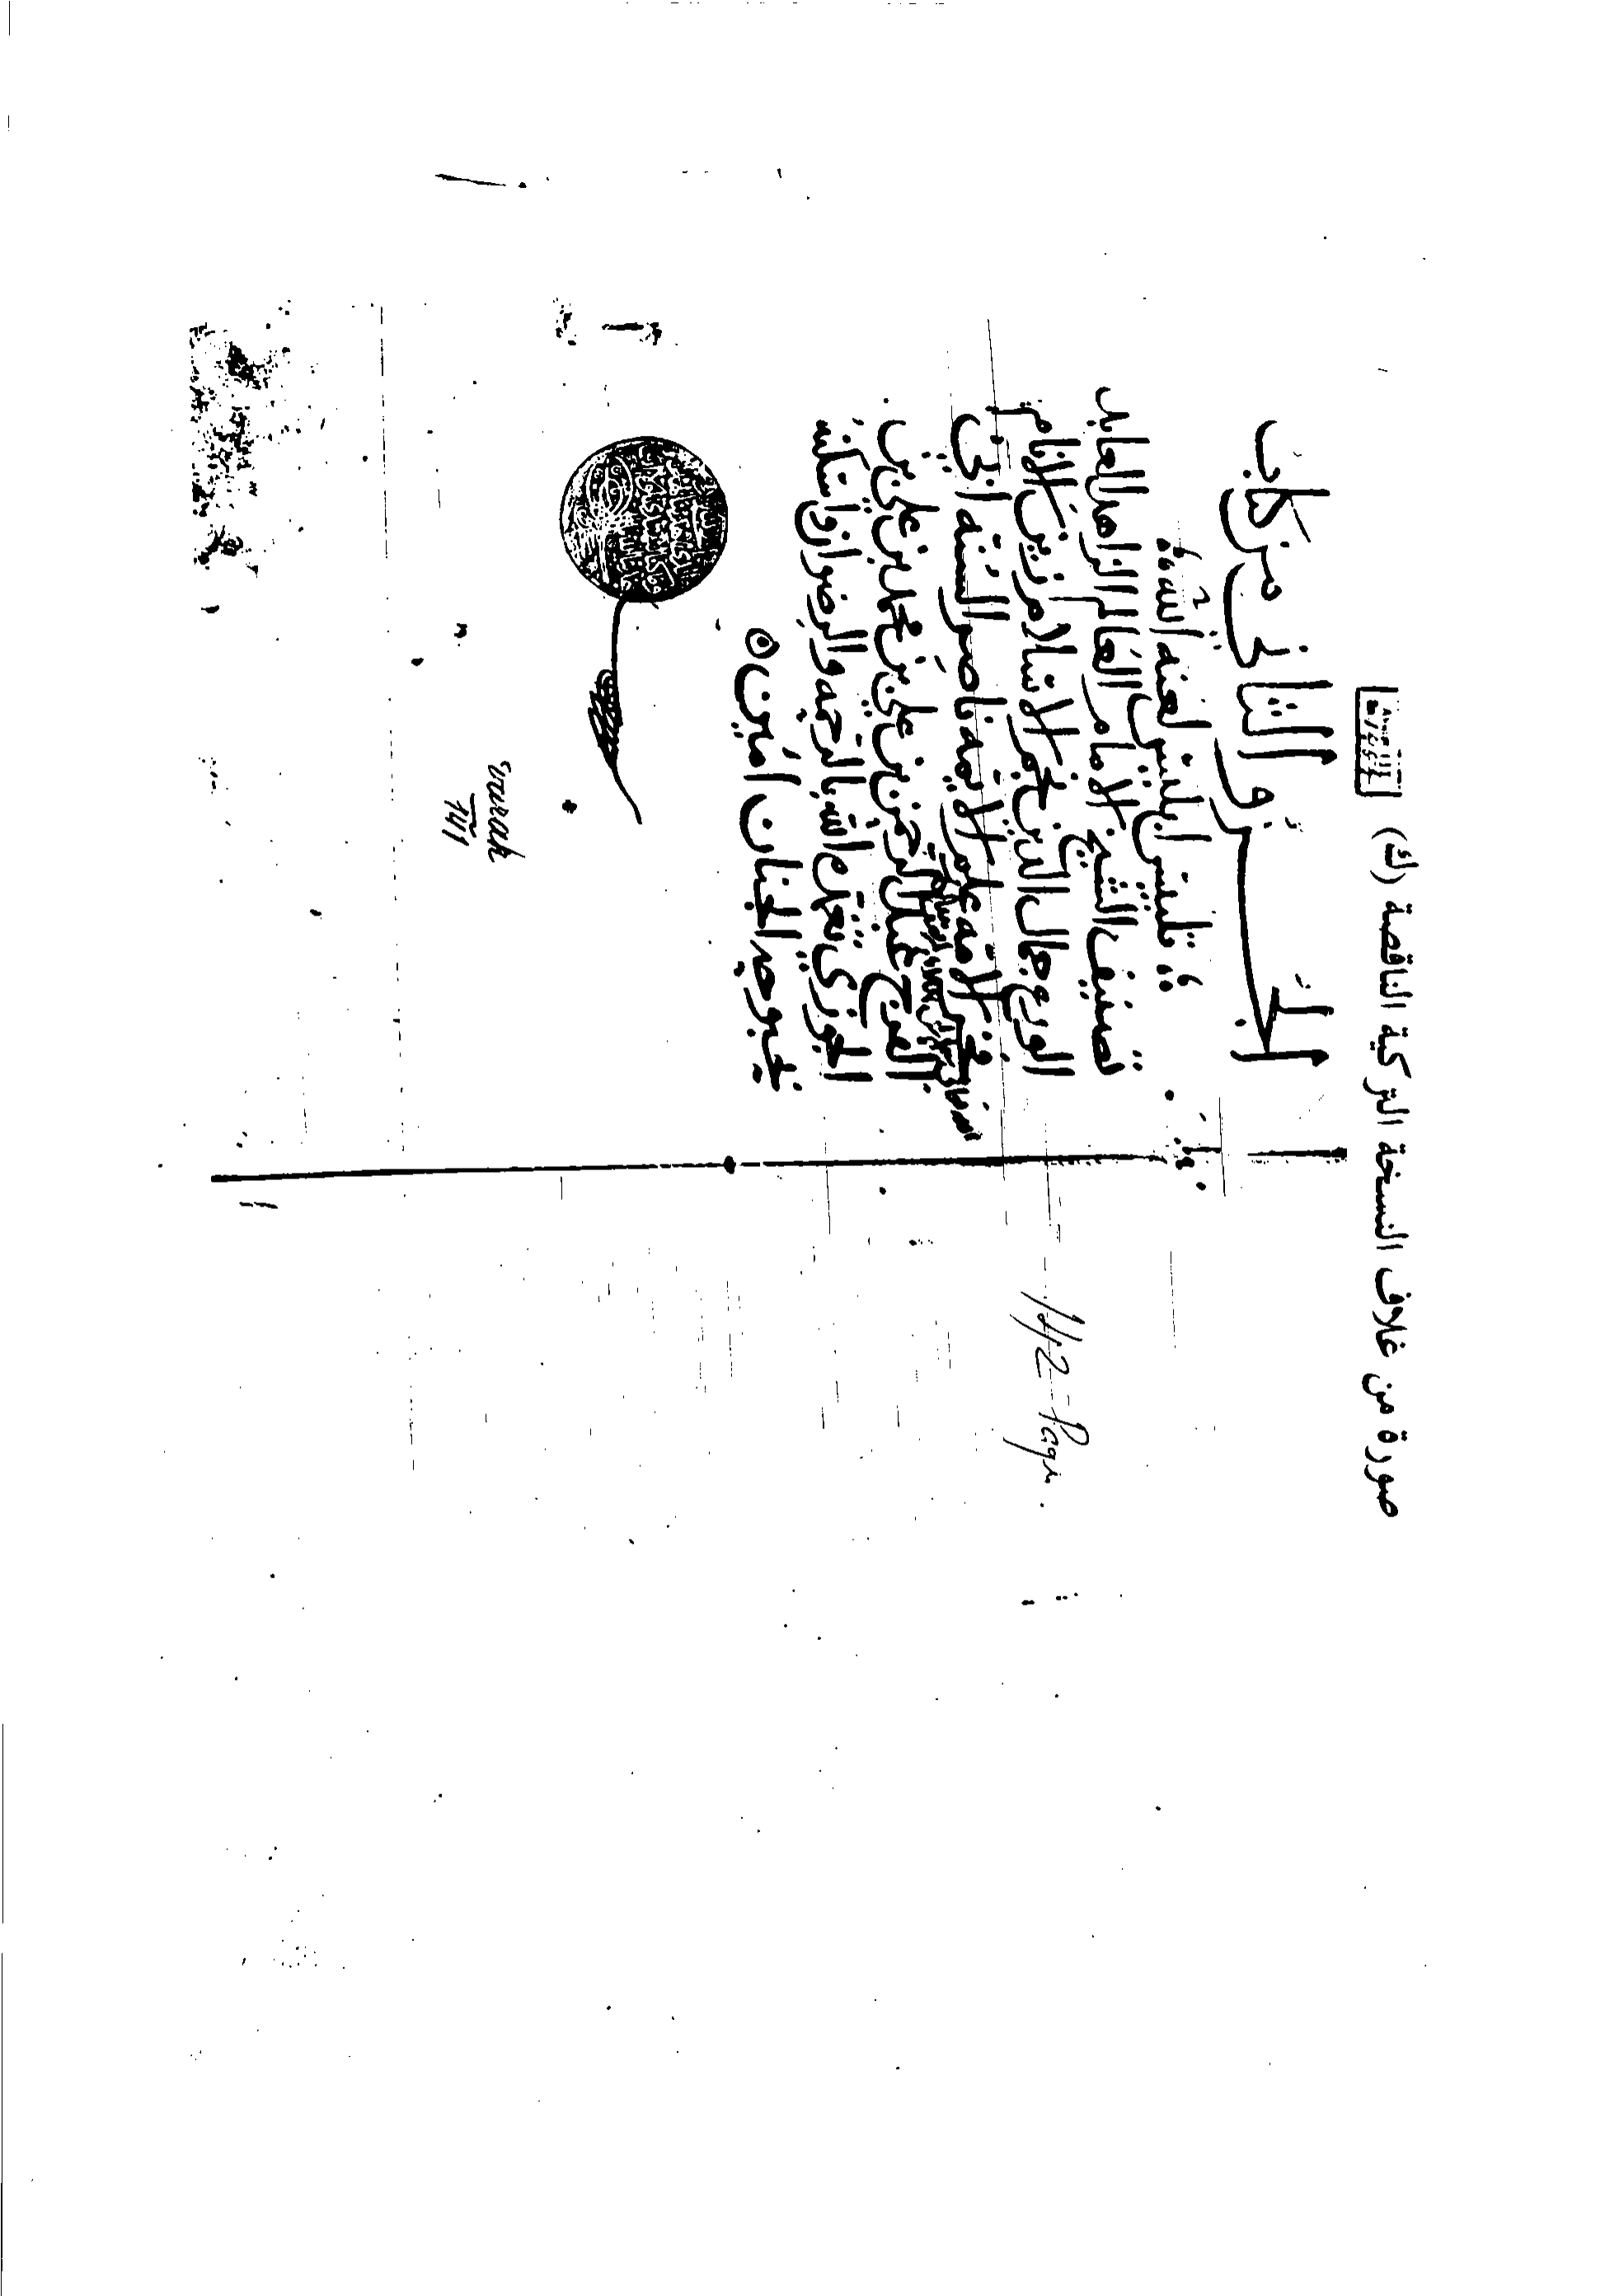 صورة من غلاف النسخة التركية الناقصة (ك)
الجـــزو الثاني من كتاب
تلبيس ابليس لعنه الله
تصنيف الشيخ الامام العالم الزاهد العابد
الورع جمال الدين نجم الاسلام زين الانام
فخر الامة علم الايمة ناصر السنة ابي
الفرج عبد الرحمن بن علي بن محمد بن علي بن
الجوزي تغمده الله بالرحمة والرضوان واسكنه
بحبوحة الجنان امين
varak
141
Page